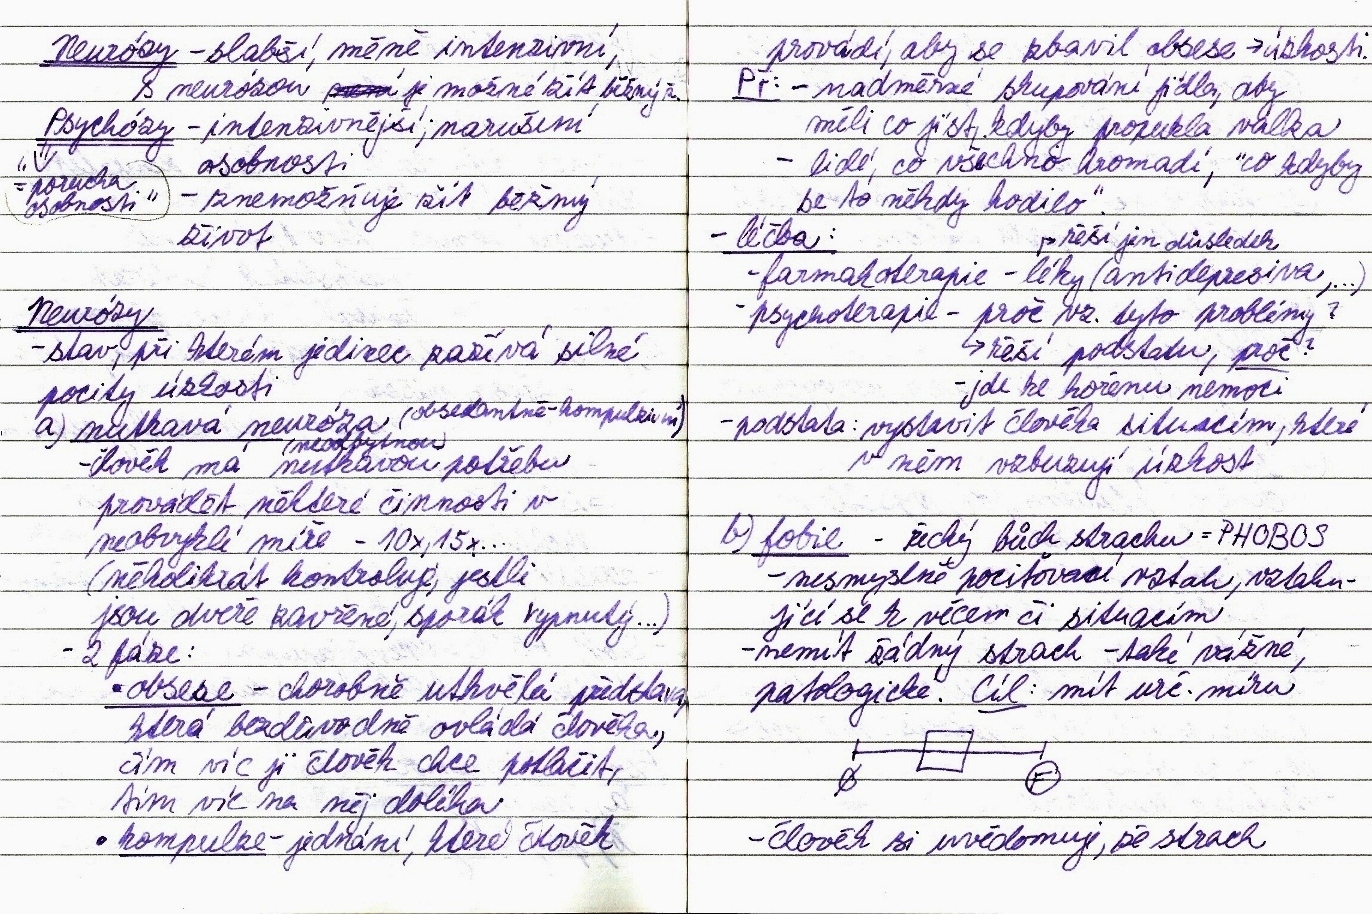 Neurózy - slabší, méně intenzivní,
s neurózou je možné žít běžný ž.
Psychózy - intenzivnější, narušení
osobnosti
"=porucha
osobnosti"
- znemožňuje žít běžný
život
Neurózy
- stav, při kterém jedinec zažívá silné
pocity úzkosti
a) nutkavá neuróza (obsedantně-kompulzivní)
(neodbytnou)
- člověk má nutkavou potřebu
provádět některé činnosti v
neobvyklé míře - 10x, 15x...
(několikrát kontroluje, jestli
jsou dveře zavřené, sporák vypnutý...)
- 2 fáze:
• obsese - chorobně utkvělá představa,
která bezdůvodně ovládá člověka,
čím víc ji člověk chce potlačit,
tím víc na něj doléhá
• kompulze - jednání, které člověk
provádí, aby se zbavil obsese → úzkosti.
Př: - nadměrné skupování jídla, aby
měli co jíst, kdyby propukla válka
- lidé, co všechno hromadí, "co kdyby
se to někdy hodilo".
- léčba:
→ řeší jen důsledek
- farmakoterapie - léky (antidepresiva,...)
- psychoterapie - proč vz. tyto problémy?
→ řeší podstatu, proč?
- jde ke kořenu nemoci
- podstata: vystavit člověka situacím, které
v něm vzbuzují úzkost
b) fobie - řecký bůh strachu = PHOBOS
- nesmyslně pociťovací vztah, vztahu-
jící se k věcem či situacím
- nemít žádný strach - také vážné,
patologické. Cíl: mít urč. míru
Ø F
- člověk si uvědomuje, že strach